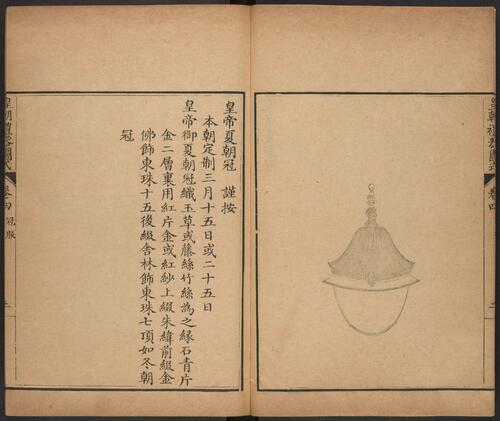 皇帝夏朝冠　謹按
本朝定制三月十五日或二十五日
皇帝御夏朝冠織玉草或藤絲竹絲為之緣石青片
金二層裏用紅片金或紅紗上綴朱緯前綴金
佛飾東珠十五後綴舍林飾東珠七頂如冬朝
冠
皇朝禮器圖式
卷四　冠服
皇朝禮器圖式
卷四